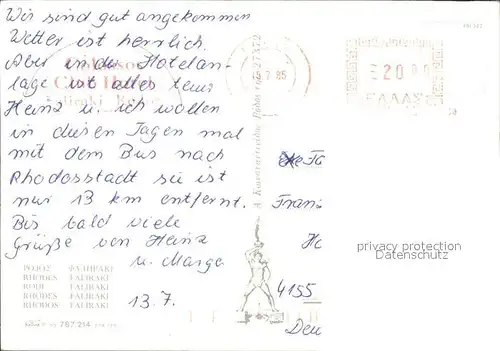 Wir sind gut angekommen
Wetter ist herrlich.
Aber in der Hotelan-
lage ist alles teuer
Heinz u. ich wollen
in diesen Tagen mal
mit dem Bus nach
Rhodosstadt sie ist
nur 13 km entfernt.
Bis bald viele
Grüße von Heinz
u. Marga
13.7.
ΡΟΔΟΣ ΦΑΛΗΡΑΚΙ
RHODES FALIRAKI
RODI FALIRAKI
RHODES FALIRAKI
RHODOS FALIRAKI
787.214
7.85
20
ΕΛΛΑΣ
Fa
Franz
4155
Deu
privacy protection
DatenSchutz